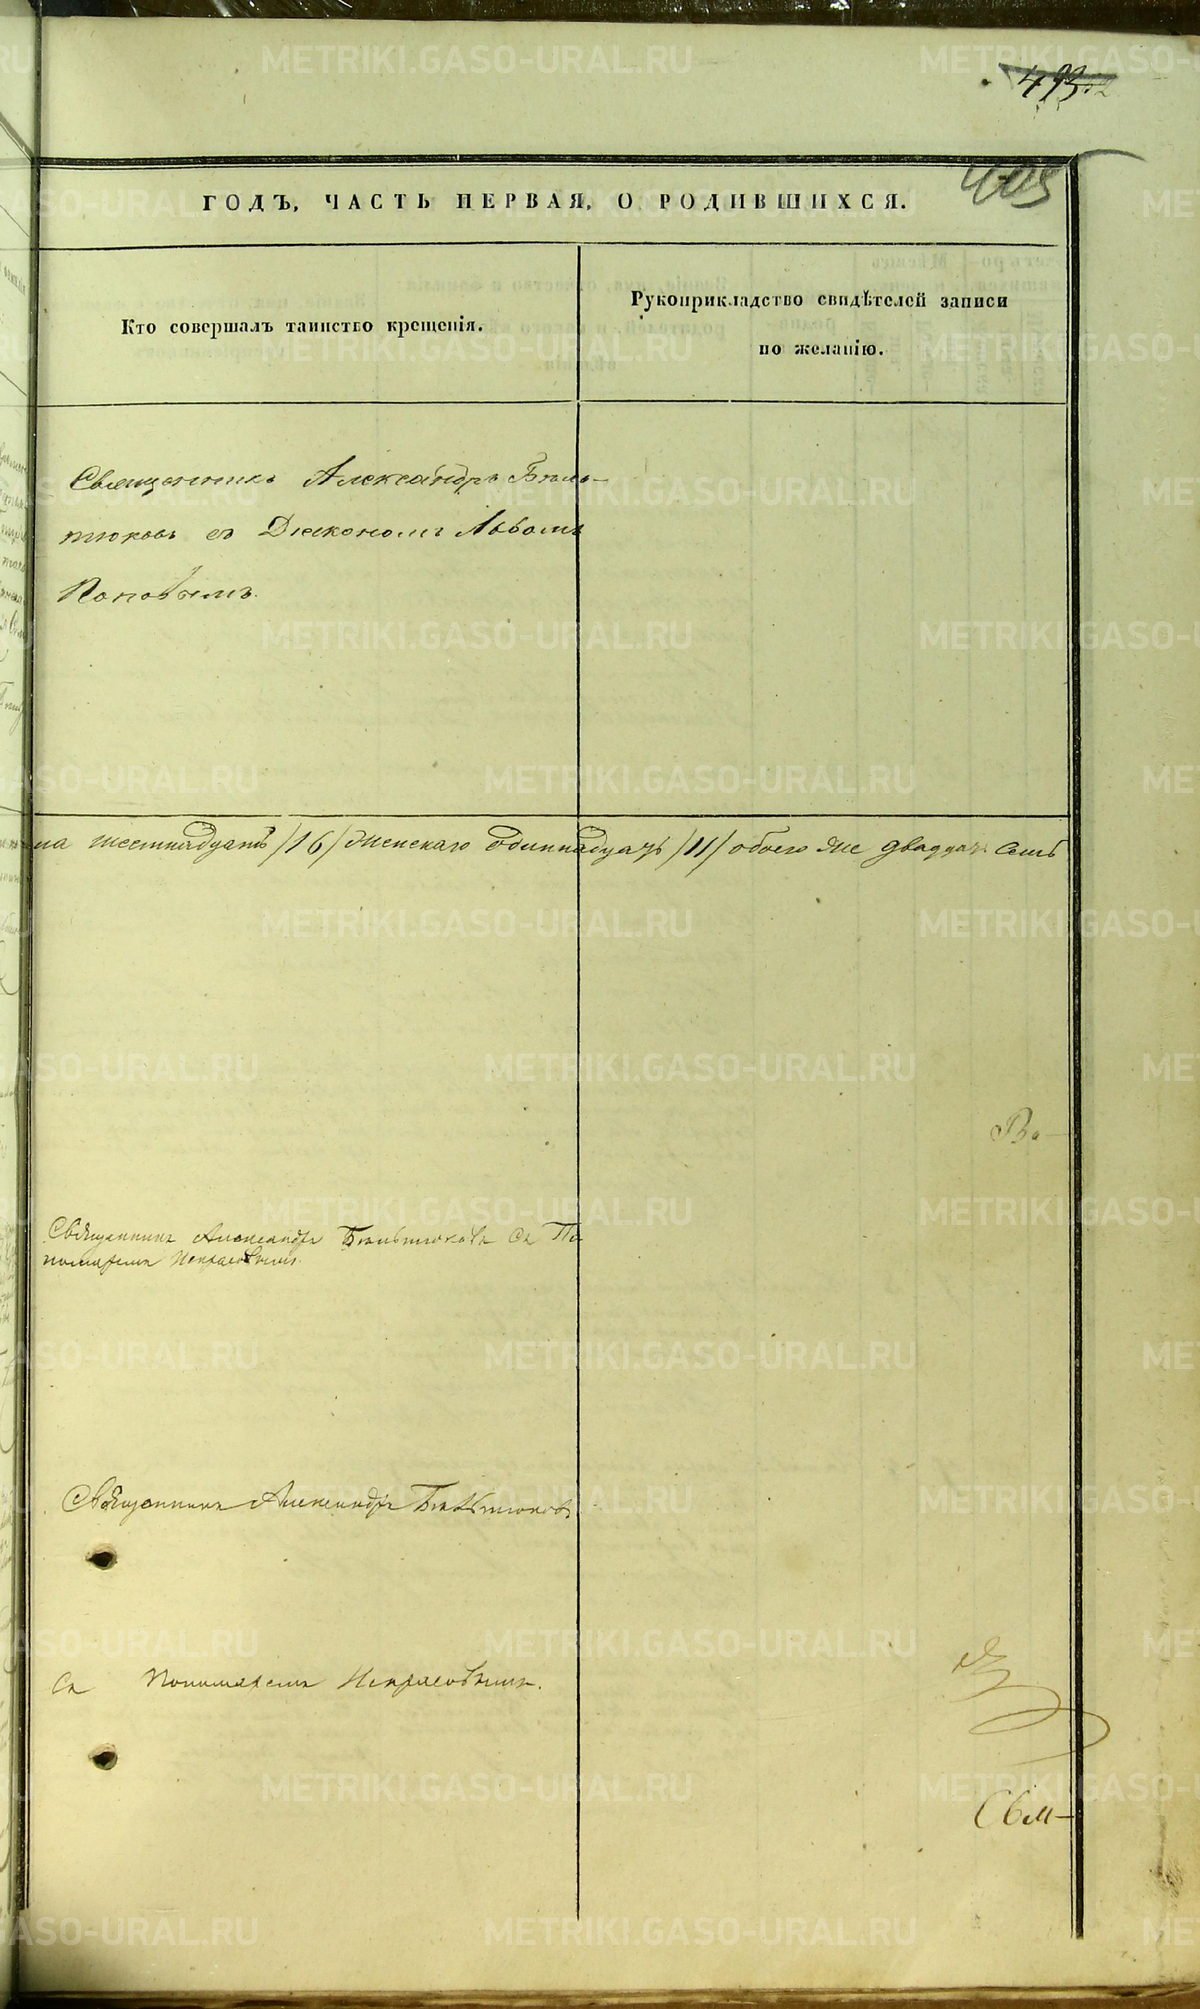 493
405
ГОДЪ, ЧАСТЬ ПЕРВАЯ, О РОДИВШИХСЯ.
Кто совершалъ таинство крещенія.
Рукоприкладство свидѣтелей записи
по желанію.
Священникъ Александръ Бѣль-
тюковъ съ Діакономъ Львомъ
Поповымъ.
на шестнадцать /16/ женскаго одиннадцать /11/ обоего же двадцать семь
Во-
Священникъ Александръ Бѣльтюковъ съ По
номаремъ Некрасовымъ.
Священникъ Александръ Бѣльтюковъ
Съ Пономаремъ Некрасовымъ.
Свя-
METRIKI.GASO-URAL.RU